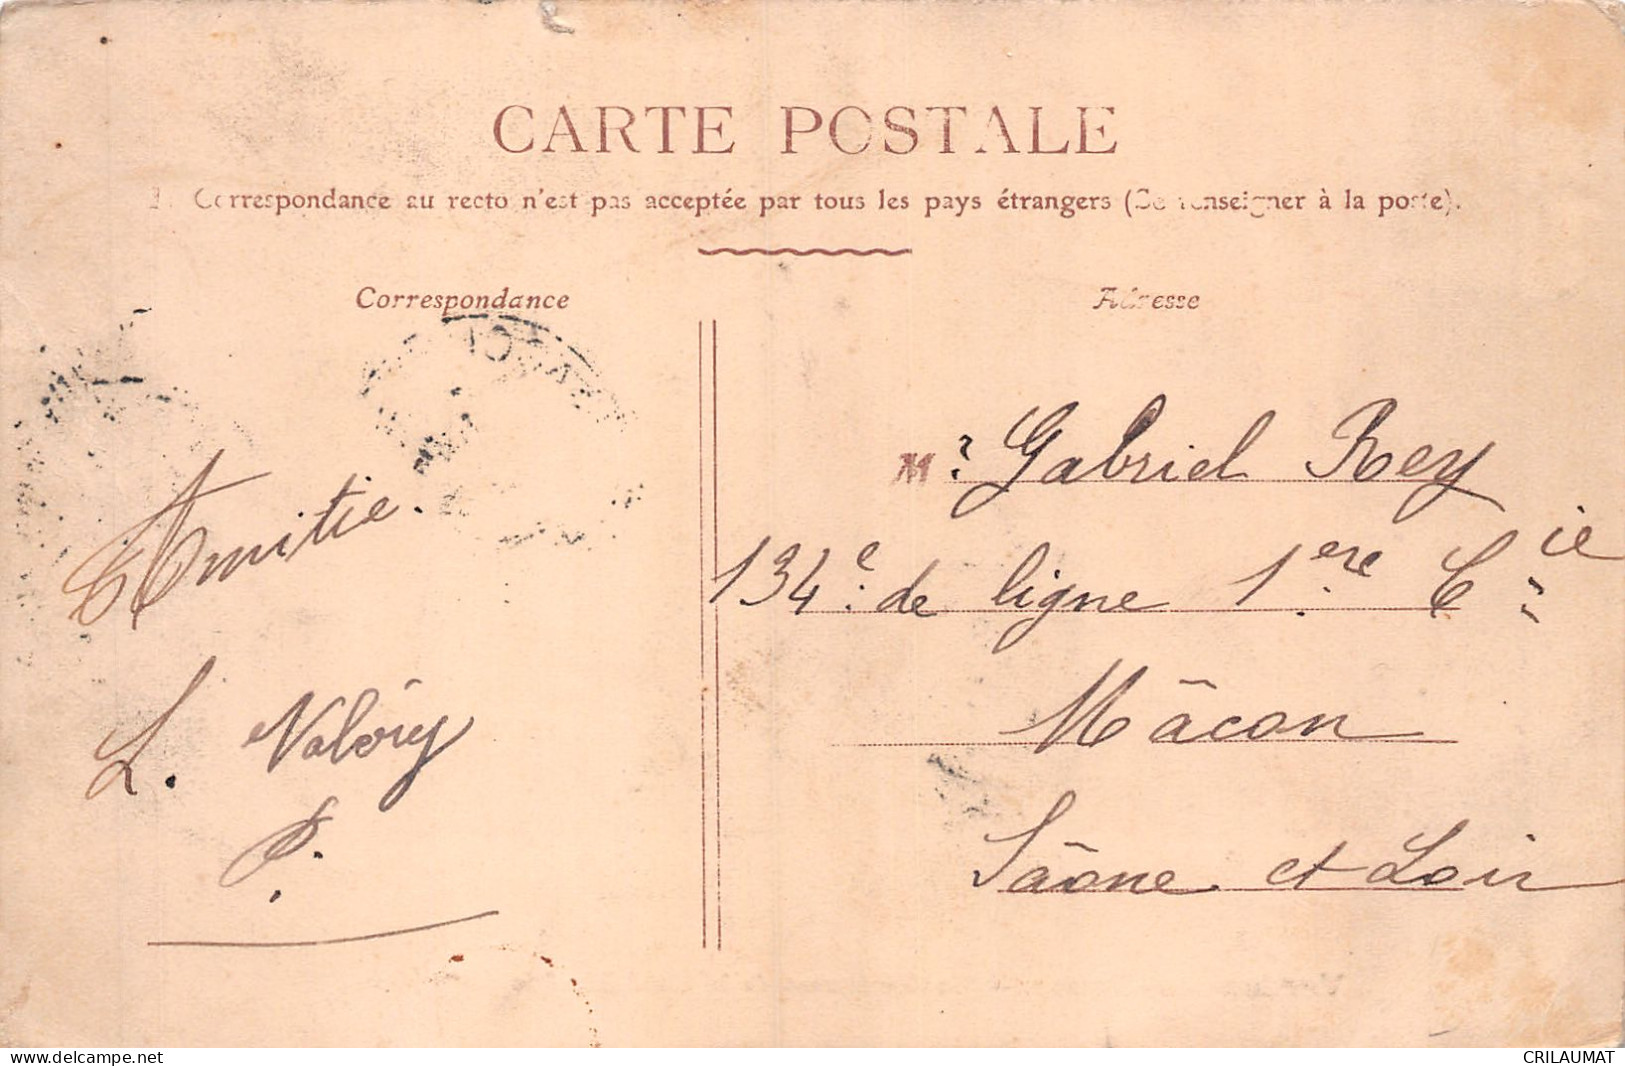 CARTE POSTALE
Correspondance au recto n'est pas acceptée par tous les pays étrangers (Se renseigner à la poste).
Correspondance
Adresse
Amitié.
L. Valéry
M. Gabriel Rey
134e de ligne 1ere Cie
Mâcon
Saône et Loir
www.delcampe.net
CRILAUMAT